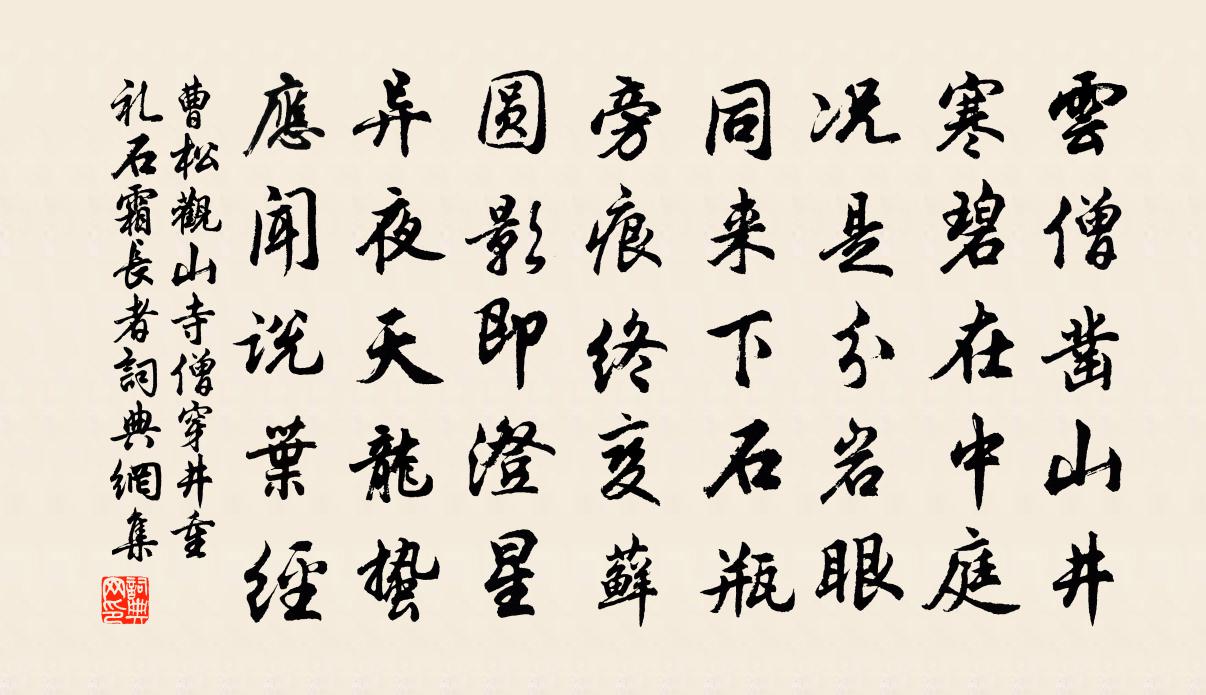 雲僧凿山井
寒碧在中庭
况是分岩眼
同来下石瓶
旁痕终变蘚
圆影即澄星
异夜天龍蟄
應聞説葉經
曹松觀山寺僧穿井重
礼石霜長者詞典網集
詞典
网印